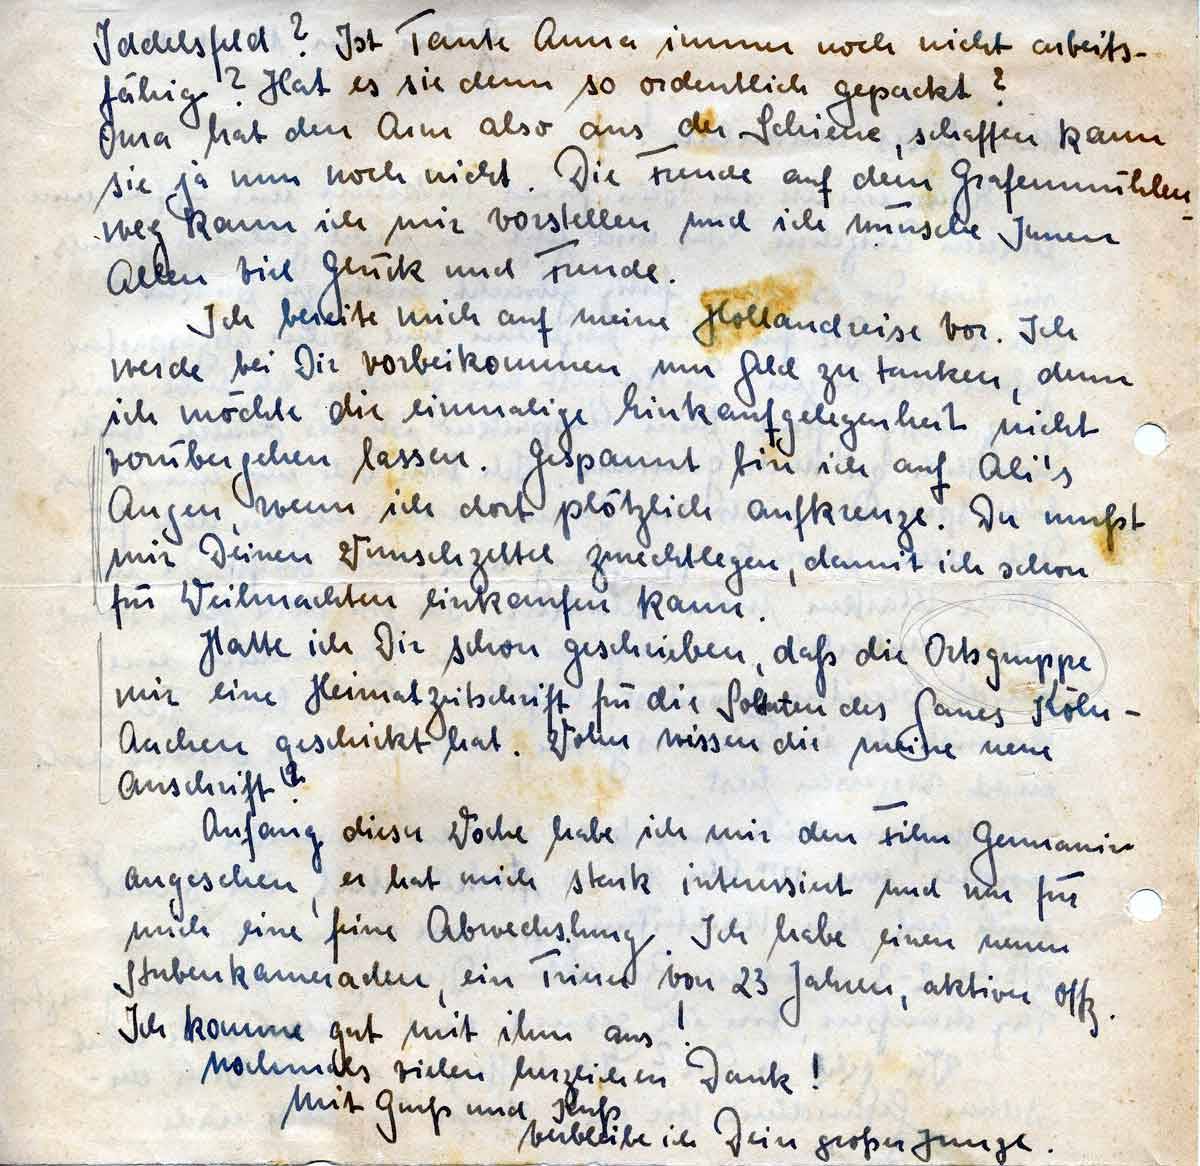 Iddelsfeld? Ist Tante Anna immer noch nicht arbeits-
fähig? Hat es sie denn so ordentlich gepackt?
Oma hat den Arm also aus der Schiene, schaffen kann
sie ja nun noch nicht. Die Freude auf dem Grafenmühlen-
weg kann ich mir vorstellen und ich wünsche Ihnen
Allen viel Glück und Freude.
Ich bereite mich auf meine Hollandreise vor. Ich
werde bei Dir vorbeikommen um Geld zu tanken, denn
ich möchte die einmalige Einkaufgelegenheit nicht
vorübergehen lassen. Gespannt bin ich auf Ali's
Augen, wenn ich dort plötzlich aufkreuze. Du mußt
mir Deinen Wunschzettel zurechtlegen, damit ich schon
für Weihnachten einkaufen kann.
Hatte ich Dir schon geschrieben, daß die Ortsgruppe
mir eine Heimatzeitschrift für die Soldaten des Gaues Köln-
Aachen geschickt hat. Woher wissen die meine neue
Anschrift?
Anfang dieser Woche habe ich mir den Film Germanin
angesehen, er hat mich stark interessiert und war für
mich eine feine Abwechslung. Ich habe einen neuen
Stubenkameraden, ein Trierer von 23 Jahren, aktiver Offz.
Ich komme gut mit ihm aus!
Nochmals vielen herzlichen Dank!
Mit Gruß und Kuß
verbleibe ich Dein großer Junge.